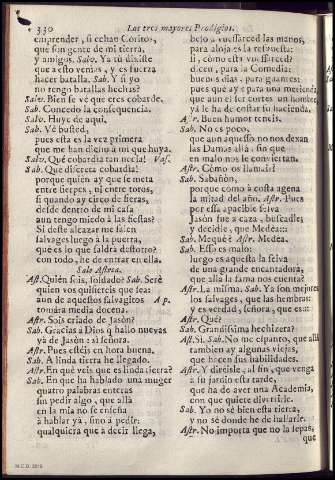 330
Los tres mayores Prodigios.
emprender, si echan Coritos,
que son gente de mi tierra,
y amigos. Salv. Ya tu dixiste
que a esto venias, y es fuerza
hacer batalla. Sab. Y si yo
no tengo batallas hechas?
Salv. Bien se vè que eres cobarde.
Sab. Concedo la consequencia.
Salv. Huye de aqui.
Sab. Vè busted,
pues esta es la vez primera
que me han dicho à mi que huya.
Salv. Què cobardia tan necia! Vas.
Sab. Que discreta cobardia!
porque quien ay que se meta
entre sierpes, ni entre toros,
si quando ay circo de fieras,
desde dentro de mi casa
aun tengo miedo à las fiestas?
Si deste alcazar me salen
salvages luego à la puerta,
què es lo que saldrà destotro?
con todo, he de entrar en ella.
Sale Astrea.
Ast. Quièn sois, soldado? Sab. Serè
quien vos quisiereis que sea:
aun de aquestos salvagitos Ap.
tomàra media docena.
Astr. Sois criado de Jasòn?
Sab. Gracias à Dios q hallo nuevas
yà de Jasòn: sì señora.
Astr. Pues esteis en hora buena.
Sab. A linda tierra he llegado.
Astr. En què veis que es linda tierra?
Sab. En que ha hablado una muger
quatro palabras enteras
sin pedir algo, que allà
en la mia no se enseña
à hablar yà, sino à pedir:
qualquiera que à decir llega,
beso à vuessarced las manos,
para aloja es la respuesta:
si, còmo està vuessarced?
dicen, para la Comedia:
buenos dias, para guantes:
pues què ay? para una merienda,
que aun el ser cortès un hombre,
yà le ha de costar su hacienda.
Astr. Buen humor teneis.
Sab. No es poco,
que aun aquesso no nos dexan
las Damas allà, sin que
en malo nos le conviertan.
Astr. Còmo os llamais?
Sab. Sabañòn,
porque como à costa agena
la mitad del año. Astr. Pues
por essa apacible selva
Jasòn fue à caza, buscadle;
y decidle, que Medea::
Sab. Mequè? Astr. Medea.
Sab. Esso es malo:
luego es aquesta la selva
de una grande encantadora,
que allà la fama nos cuenta?
Astr. La misma. Sab. Yà son mejores
los salvages, que las hembras:
y es verdad, señora, que es::
Astr. Què?
Sab. Grandissima hechizera?
Astr. Si. Sab. No me espanto, que allà
tambien ay algunas viejas,
que hacen sus habilidades.
Astr. Y direisle, al fin, que venga
à su jardin esta tarde,
que ha de aver una Academia,
con que quiere divertirle.
Sab. Yo no sè bien esta tierra,
y no sè donde he de hallarle.
Astr. No importa que no la sepas,
que